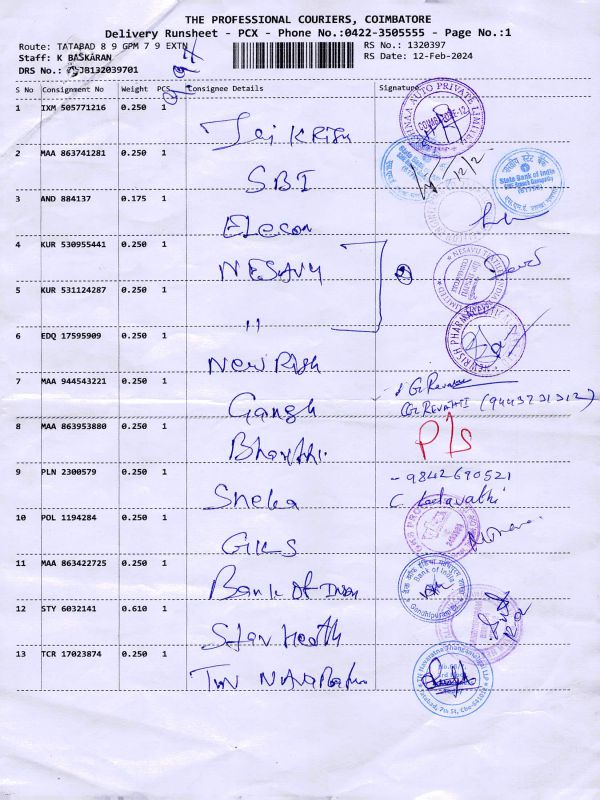 THE PROFESSIONAL COURIERS, COIMBATORE
Delivery Runsheet - PCX - Phone No.:0422-3505555 - Page No.:1
Route: TATABAD 8 9 GPM 7 9 EXTN
RS No.: 1320397
Staff: K BASKARAN
RS Date: 12-Feb-2024
DRS No.: JB132039701
S No Consignment No Weight PCS Consignee Details Signature
1 IXM 505771216 0.250 1
2 MAA 863741281 0.250 1 SBI 12/2
State Bank of India
3 AND 884137 0.175 1 Elecon
4 KUR 530955441 0.250 1 NESAVU
5 KUR 531124287 0.250 1 11
6 EDQ 17595909 0.250 1 New Rish
7 MAA 944543221 0.250 1 Gangh G Revathi
REVATHI (9443731312)
8 MAA 863953880 0.250 1 Bharathi P/S
9 PLN 2300579 0.250 1 Sneka - 9842690521
10 POL 1194284 0.250 1 GKS
11 MAA 863422725 0.250 1 Bank of India
Bank of India
12 STY 6032141 0.610 1 Star Health
13 TCR 17023874 0.250 1